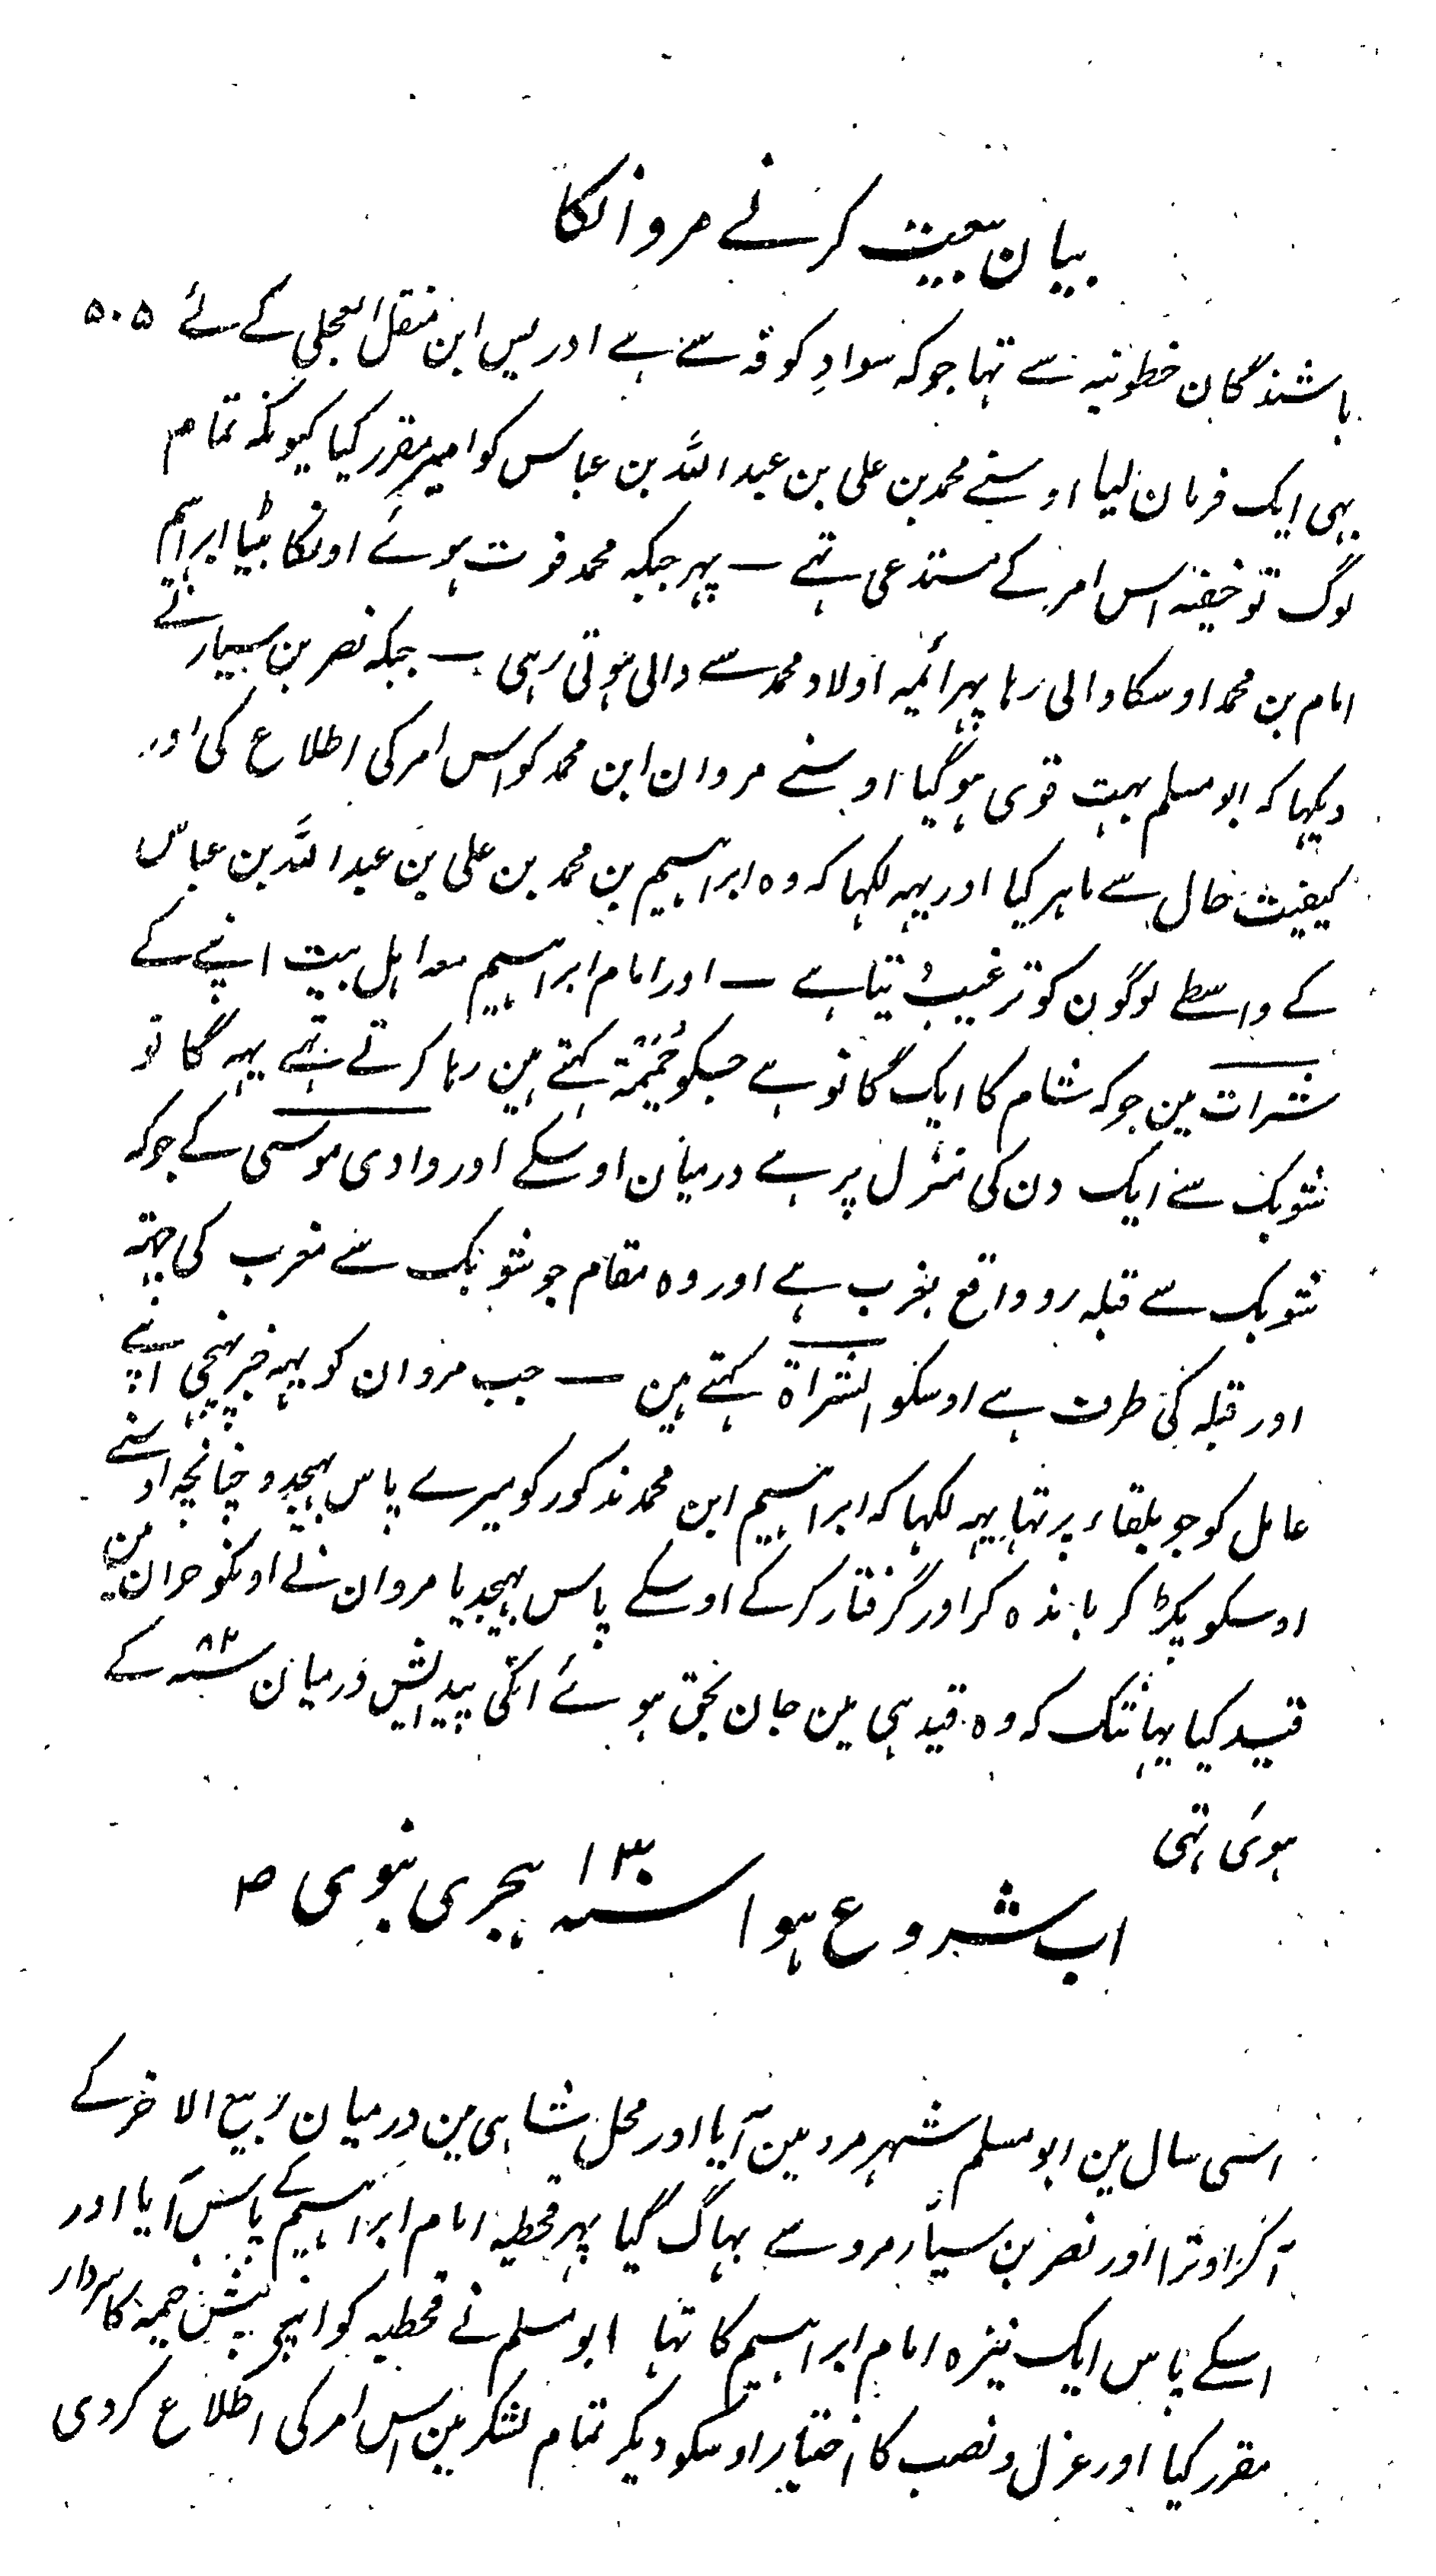 بیان بیعت کرنے مروانکا
۵۰۵
باشندگان خطونیہ سے تہا جو کہ سوادِ کوفہ سے ہے ادریس ابن منقل العجلی کے لئے
یہی ایک فرمان لیا اوسنے محمد بن علی بن عبد اللہ بن عباس کو امیر مقرر کیا کیونکہ تمام
لوگ تو خفیۃ اس امر کے مستدعی تہے ــ پہر جبکہ محمد فوت ہوئے اونکا بیٹا ابراہیم
امام بن محمد اوسکا والی رہا پہر ائمیہ اولاد محمد سے والی ہوتی رہی ــ جبکہ نصر بن سیار نے
دیکہا کہ ابو مسلم بہت قوی ہوگیا اوسنے مروان ابن محمد کو اس امر کی اطلاع کی اور
کیفیت حال سے ماہر کیا اور یہہ لکہا کہ وہ ابراہیم بن محمد بن علی بن عبد اللہ بن عباس
کے واسطے لوگون کو ترغیب دیتا ہے ــ اور امام ابراہیم معہ اہل بیت اپنے کے
شرات مین جو کہ شام کا ایک گانو ہے جسکو حُمَیْمَۃ کہتے ہین رہا کرتے تہے یہہ گانو
شوبک سے ایک دن کی منزل پر ہے درمیان اوسکے اور وادی موسی کے جو کہ
شوبک سے قبلہ رو واقع بغرب ہے اور وہ مقام جو شوبک سے مغرب کی جہتہ
اور قبلہ کی طرف ہے اوسکو الشراۃ کہتے ہین ــ جب مروان کو یہہ خبر پہنچی اپنے
عامل کو جو بلقاء پر تہا یہہ لکہا کہ ابراہیم ابن محمد مذکور کو میرے پاس بہیجدو چنانچہ اوسنے
اوسکو پکڑ کر باندہ کر اور گرفتار کر کے اوسکے پاس بہیجدیا مروان نے اونکو حران مین
قید کیا یہانتک کہ وہ قید ہی مین جان بحق ہوئے انکی پیدایش درمیان سنہ ۸۲ کے
ہوئی تہی
اب شروع ہوا سنہ ۱۳۰ ہجری نبوی ص
اسی سال مین ابو مسلم شہر مرو مین آیا اور محل شاہی مین درمیان ربیع الاخر کے
آکر اوترا اور نصر بن سیار مرو سے بہاگ گیا پہر قحطبہ امام ابراہیم کے پاس آیا اور
اسکے پاس ایک نیزہ امام ابراہیم کا تہا ابو مسلم نے قحطبہ کو اپنے پیش خیمہ کا سردار
مقرر کیا اور عزل و نصب کا اختیار اوسکو دیکر تمام لشکر مین اس امر کی اطلاع کردی